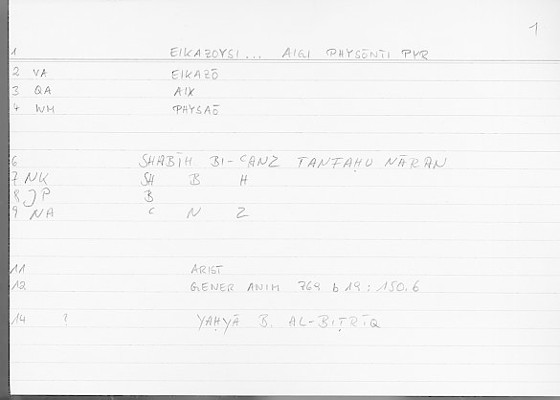 1
1 EIKAZOYSI... AIGI PHYSONTI PYR
2 VA EIKAZŌ
3 QA AIX
4 WM PHYSAŌ
6 SHABĪH BI-ʿANZ TANFAḪU NĀRAN
7 NK SH B H
8 JP B
9 NA ʿ N Z
11 ARIST
12 GENER ANIM 769 b 19 : 150.6
14 ? YAḤYĀ B. AL-BIṬRĪQ